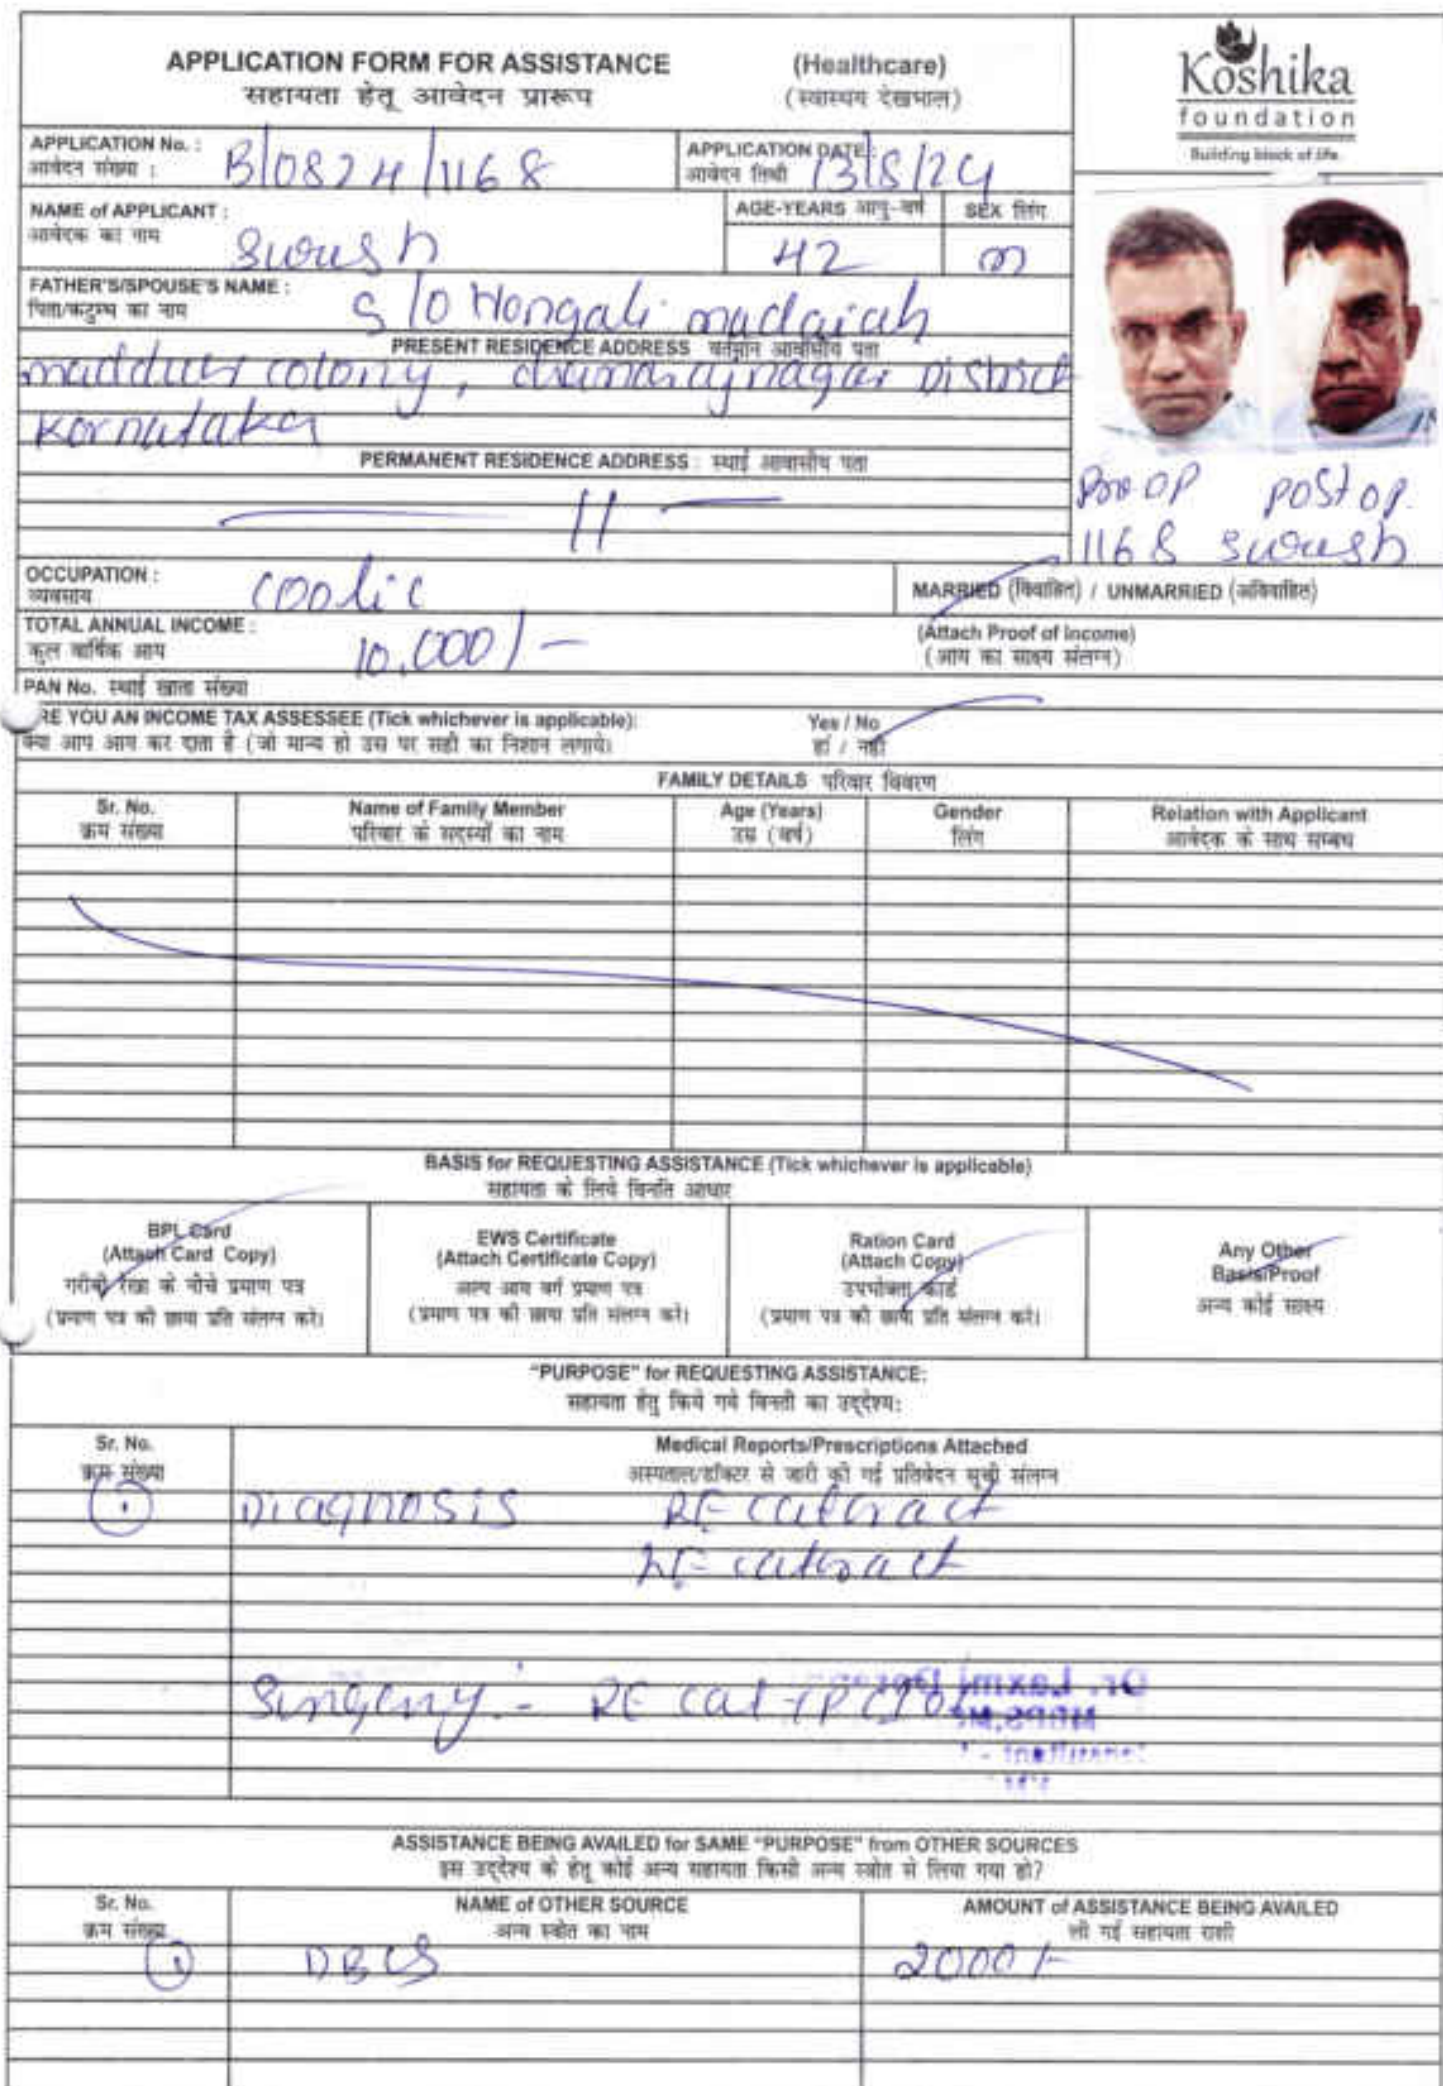 APPLICATION FORM FOR ASSISTANCE (Healthcare)
सहायता हेतू आवेदन प्रारूप (स्वास्थय देखभाल)
Koshika
foundation
Building block of life.
APPLICATION No. :
आवेदन संख्या :
B/0824/1168
APPLICATION DATE :
आवेदन तिथी
13/8/24
NAME of APPLICANT :
आवेदक का नाम
AGE-YEARS आयु-वर्ष
SEX लिंग
Suresh
42
m
FATHER'S/SPOUSE'S NAME :
पिता/कटुम्ब का नाम
S/o Hongali madaiah
PRESENT RESIDENCE ADDRESS वर्तमान आवासीय पता
colony, chamarajnagar District
Karnataka
PERMANENT RESIDENCE ADDRESS : स्थाई आवासीय पता
— 11 —
Pre OP post op.
1168 suresh
OCCUPATION :
व्यवसाय
coolie
MARRIED (विवाहित) / UNMARRIED (अविवाहित)
TOTAL ANNUAL INCOME :
कुल वार्षिक आय
10,000/-
(Attach Proof of Income)
(आय का साक्ष्य संलग्न)
PAN No. स्थाई खाता संख्या
RE YOU AN INCOME TAX ASSESSEE (Tick whichever is applicable): Yes / No
क्या आप आय कर दाता है (जो मान्य हो उस पर सही का निशान लगाये। हां / नही
FAMILY DETAILS परिवार विवरण
Sr. No. Name of Family Member Age (Years) Gender Relation with Applicant
क्रम संख्या परिवार के सदस्यों का नाम उम्र (वर्ष) लिंग आवेदक के साथ सम्बध
BASIS for REQUESTING ASSISTANCE (Tick whichever is applicable)
सहायता के लिये विनति आधार
BPL Card
(Attach Card Copy)
गरीबी रेखा के नीचे प्रमाण पत्र
(प्रमाण पत्र की छाया प्रति संलग्न करे।
EWS Certificate
(Attach Certificate Copy)
अल्प आय वर्ग प्रमाण पत्र
(प्रमाण पत्र की छाया प्रति संलग्न करे।
Ration Card
(Attach Copy)
उपभोक्ता कार्ड
(प्रमाण पत्र की छाया प्रति संलग्न करे।
Any Other
Basis/Proof
अन्य कोई साक्ष्य
"PURPOSE" for REQUESTING ASSISTANCE:
सहायता हेतु किये गये विनती का उद्देश्य:
Sr. No. Medical Reports/Prescriptions Attached
क्रम संख्या अस्पताल/डॉक्टर से जारी की गई प्रतिवेदन सूची संलग्न
1 Diagnosis RE cataract
LE cataract
Surgery :- RE cat
Dr. Laxmi
ASSISTANCE BEING AVAILED for SAME "PURPOSE" from OTHER SOURCES
इस उद्देश्य के हेतू कोई अन्य सहायता किसी अन्य स्त्रोत से लिया गया हो?
Sr. No. NAME of OTHER SOURCE AMOUNT of ASSISTANCE BEING AVAILED
क्रम संख्या अन्य स्त्रोत का नाम ली गई सहायता राशी
1 DBCS 2000/-